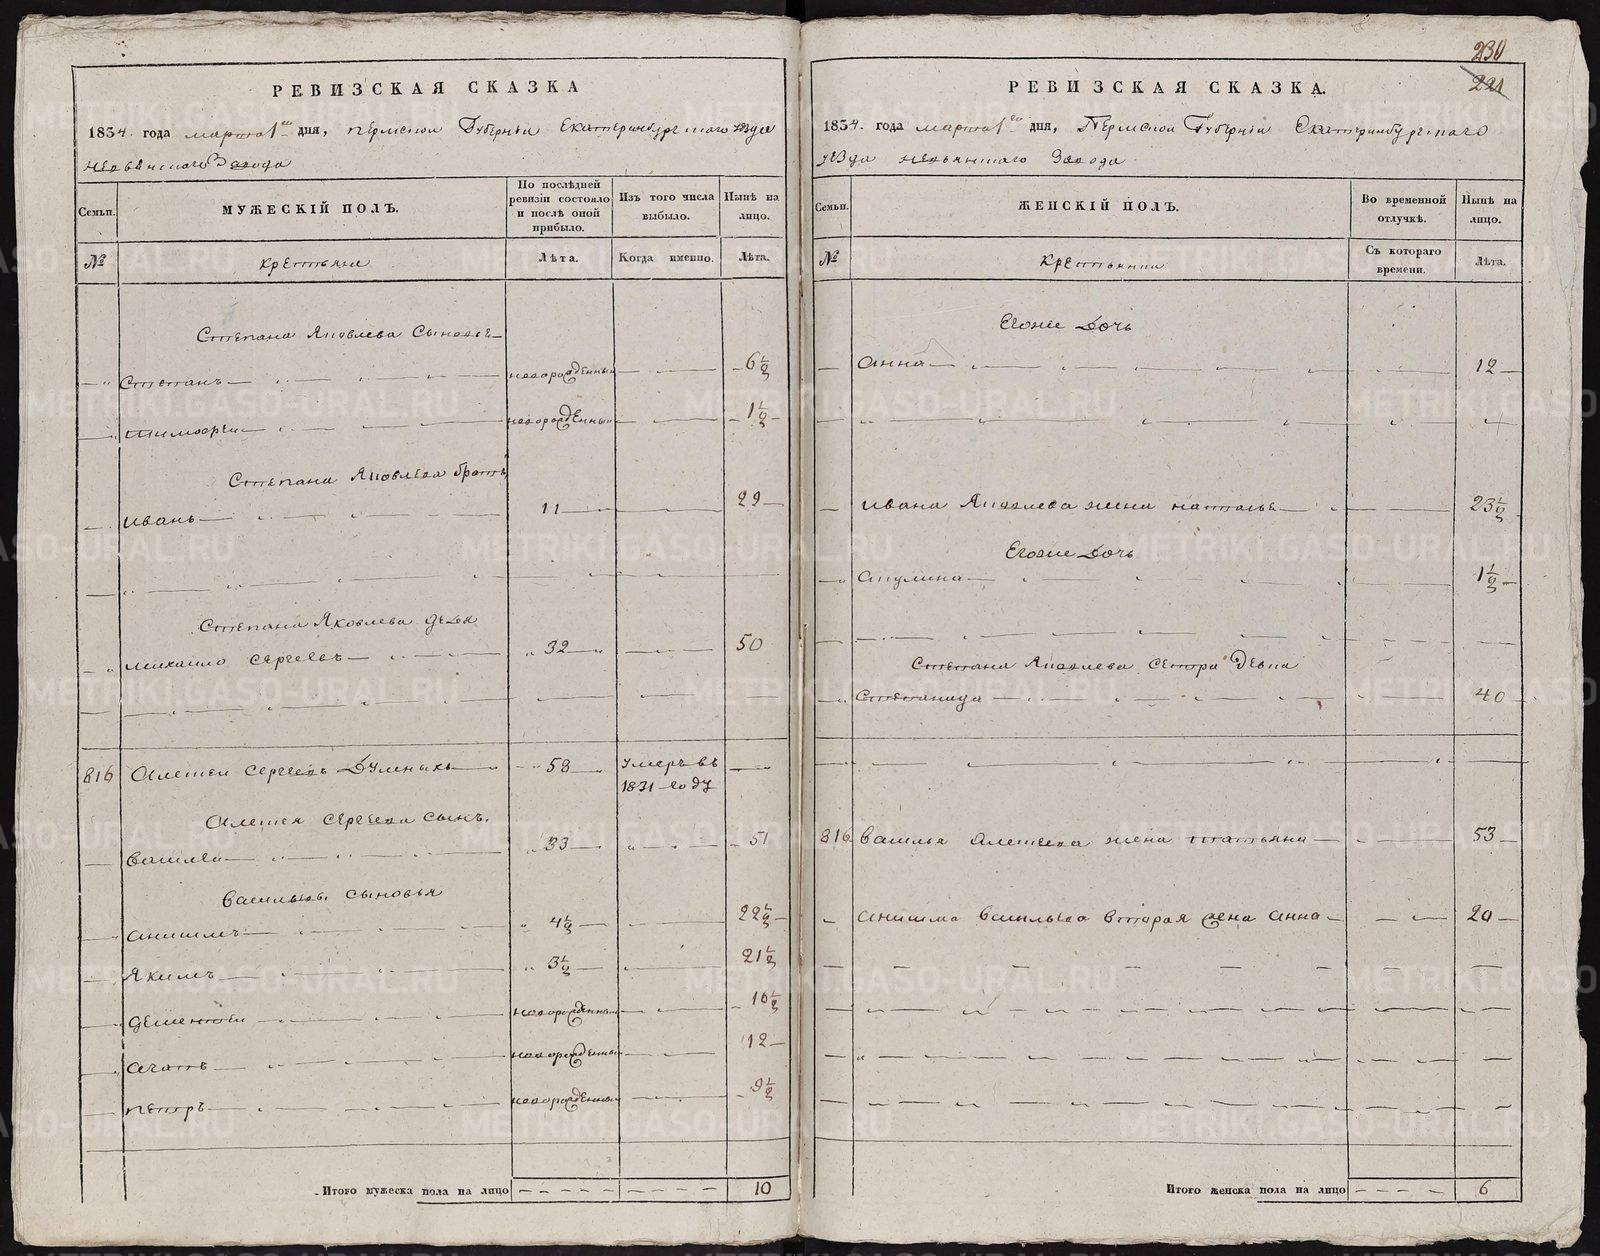 РЕВИЗСКАЯ СКАЗКА
1834. года марта 1го дня, Пермской Губернiи Екатеринбургскаго уѣзда
Невьянскаго Завода
Семьи.
МУЖЕСКІЙ ПОЛЪ.
По послѣдней ревизіи состояло и послѣ оной прибыло.
Изъ того числа выбыло.
Нынѣ на лицо.
№
Крестьяне
Лѣта.
Когда именно.
Лѣта.
Степана Яковлева Сыновье
Степанъ новорожденный 6½
Тимофеи новорожденный 1½
Степана Яковлева братъ
Иванъ 11 29
Степана Яковлева дядя
Михаило Сергеевъ 32 50
816 Алексеи Сергеевъ 58 умеръ въ 1831 году
Алексея Сергеева сынъ.
Василеи 33 51
Васильевы Сыновья
Анисимъ 4½ 22½
Якимъ 3½ 21½
Дементеи новорожденный 16½
Агапъ новорожденный 12
Петръ новорожденный 9½
Итого мужеска пола на лицо 10
230
221
РЕВИЗСКАЯ СКАЗКА.
1834. года марта 1го дня, Пермской Губернiи Екатеринбургскаго
уѣзда Невьянскаго Завода
Семьи.
ЖЕНСКІЙ ПОЛЪ.
Во временной отлучкѣ.
Нынѣ на лицо.
№
Крестьянки
Съ котораго времени.
Лѣта.
Егоже Дочь
Анна 12
Ивана Яковлева жена Наталье 23½
Егоже Дочь
Акулина 1½
Степана Яковлева сестра Девка
Степанида 40
816 Василья Алексеева жена Татьяна 53
Анисима Васильева вторая жена Анна 20
Итого женска пола на лицо 6
METRIKI.GASO-URAL.RU